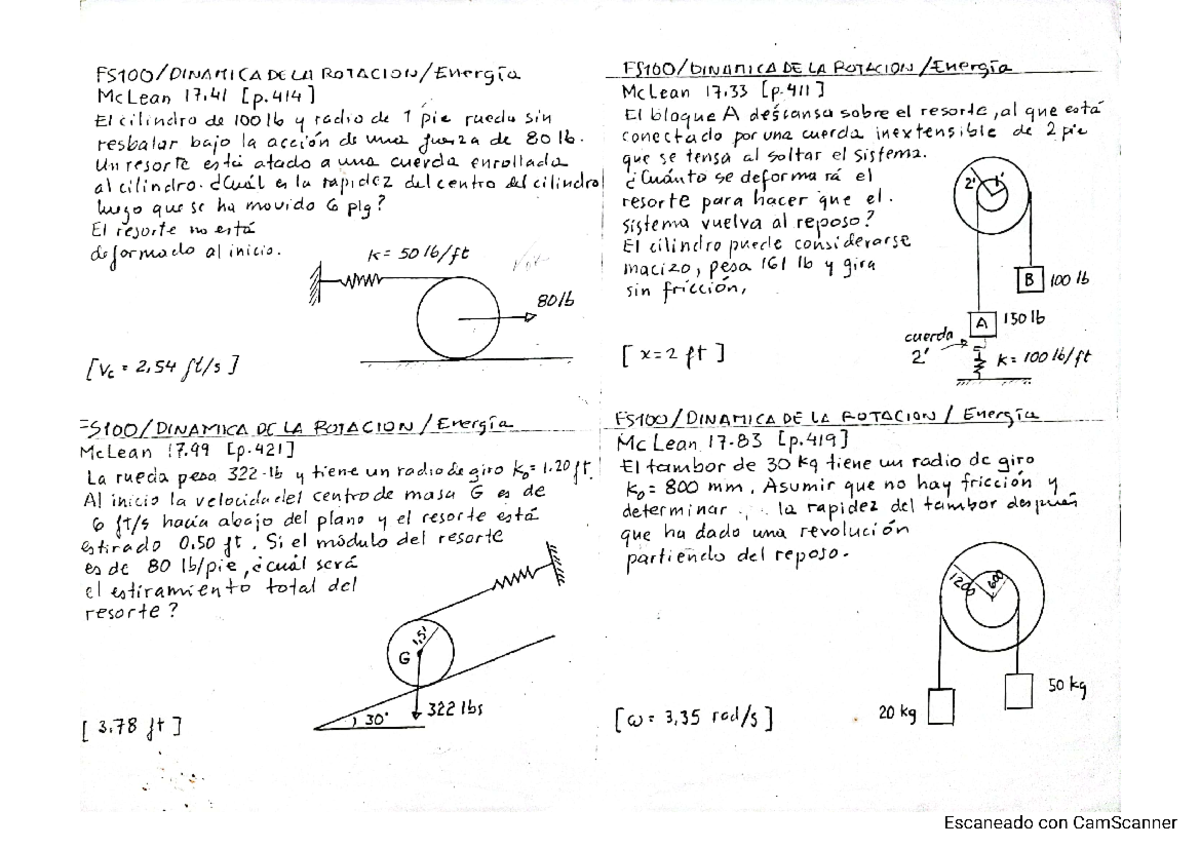 FS100/DINAMICA DE LA ROTACION/Energía
McLean 17.41 [p.414]
El cilindro de 100 lb y radio de 1 pie rueda sin
resbalar bajo la acción de una fuerza de 80 lb.
Un resorte está atado a una cuerda enrollada
al cilindro. ¿Cuál es la rapidez del centro del cilindro
luego que se ha movido 6 plg?
El resorte no está
deformado al inicio.
k= 50 lb/ft
80 lb
[Vc = 2,54 ft/s]
FS100/DINAMICA DE LA ROTACION/Energía
McLean 17.33 [p.411]
El bloque A descansa sobre el resorte, al que está
conectado por una cuerda inextensible de 2 pie
que se tensa al soltar el sistema.
¿Cuánto se deformará el
resorte para hacer que el
sistema vuelva al reposo?
El cilindro puede considerarse
macizo, pesa 161 lb y gira
sin fricción,
2' 1'
B 100 lb
A 150 lb
cuerda
2'
k= 100 lb/ft
[x=2 ft]
FS100/DINAMICA DE LA ROTACION/Energía
McLean 17.99 [p.421]
La rueda pesa 322-lb y tiene un radio de giro ko= 1.20 ft.
Al inicio la velocidad del centro de masa G es de
6 ft/s hacia abajo del plano y el resorte está
estirado 0.50 ft. Si el módulo del resorte
es de 80 lb/pie, ¿cuál será
el estiramiento total del
resorte?
1,5'
G
322 lbs
30°
[3.78 ft]
FS100/DINAMICA DE LA ROTACION/Energía
McLean 17-83 [p.419]
El tambor de 30 kg tiene un radio de giro
ko= 800 mm. Asumir que no hay fricción y
determinar la rapidez del tambor después
que ha dado una revolución
partiendo del reposo.
1200 600
50 kg
20 kg
[ω= 3,35 rad/s]
Escaneado con CamScanner